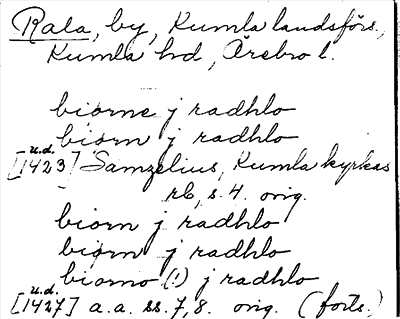 Rala, by, Kumla landsförs.,
Kumla hd, Örebro l.
biorne j radhlo
biorn j radhlo
[u.d. 1423] Samzelius, Kumla kyrkas
rb, s. 4. orig.
biorn j radhlo
biorn j radhlo
biorno (!) j radhlo
[u.d. 1427] a.a. ss. 7, 8. orig. (forts.)